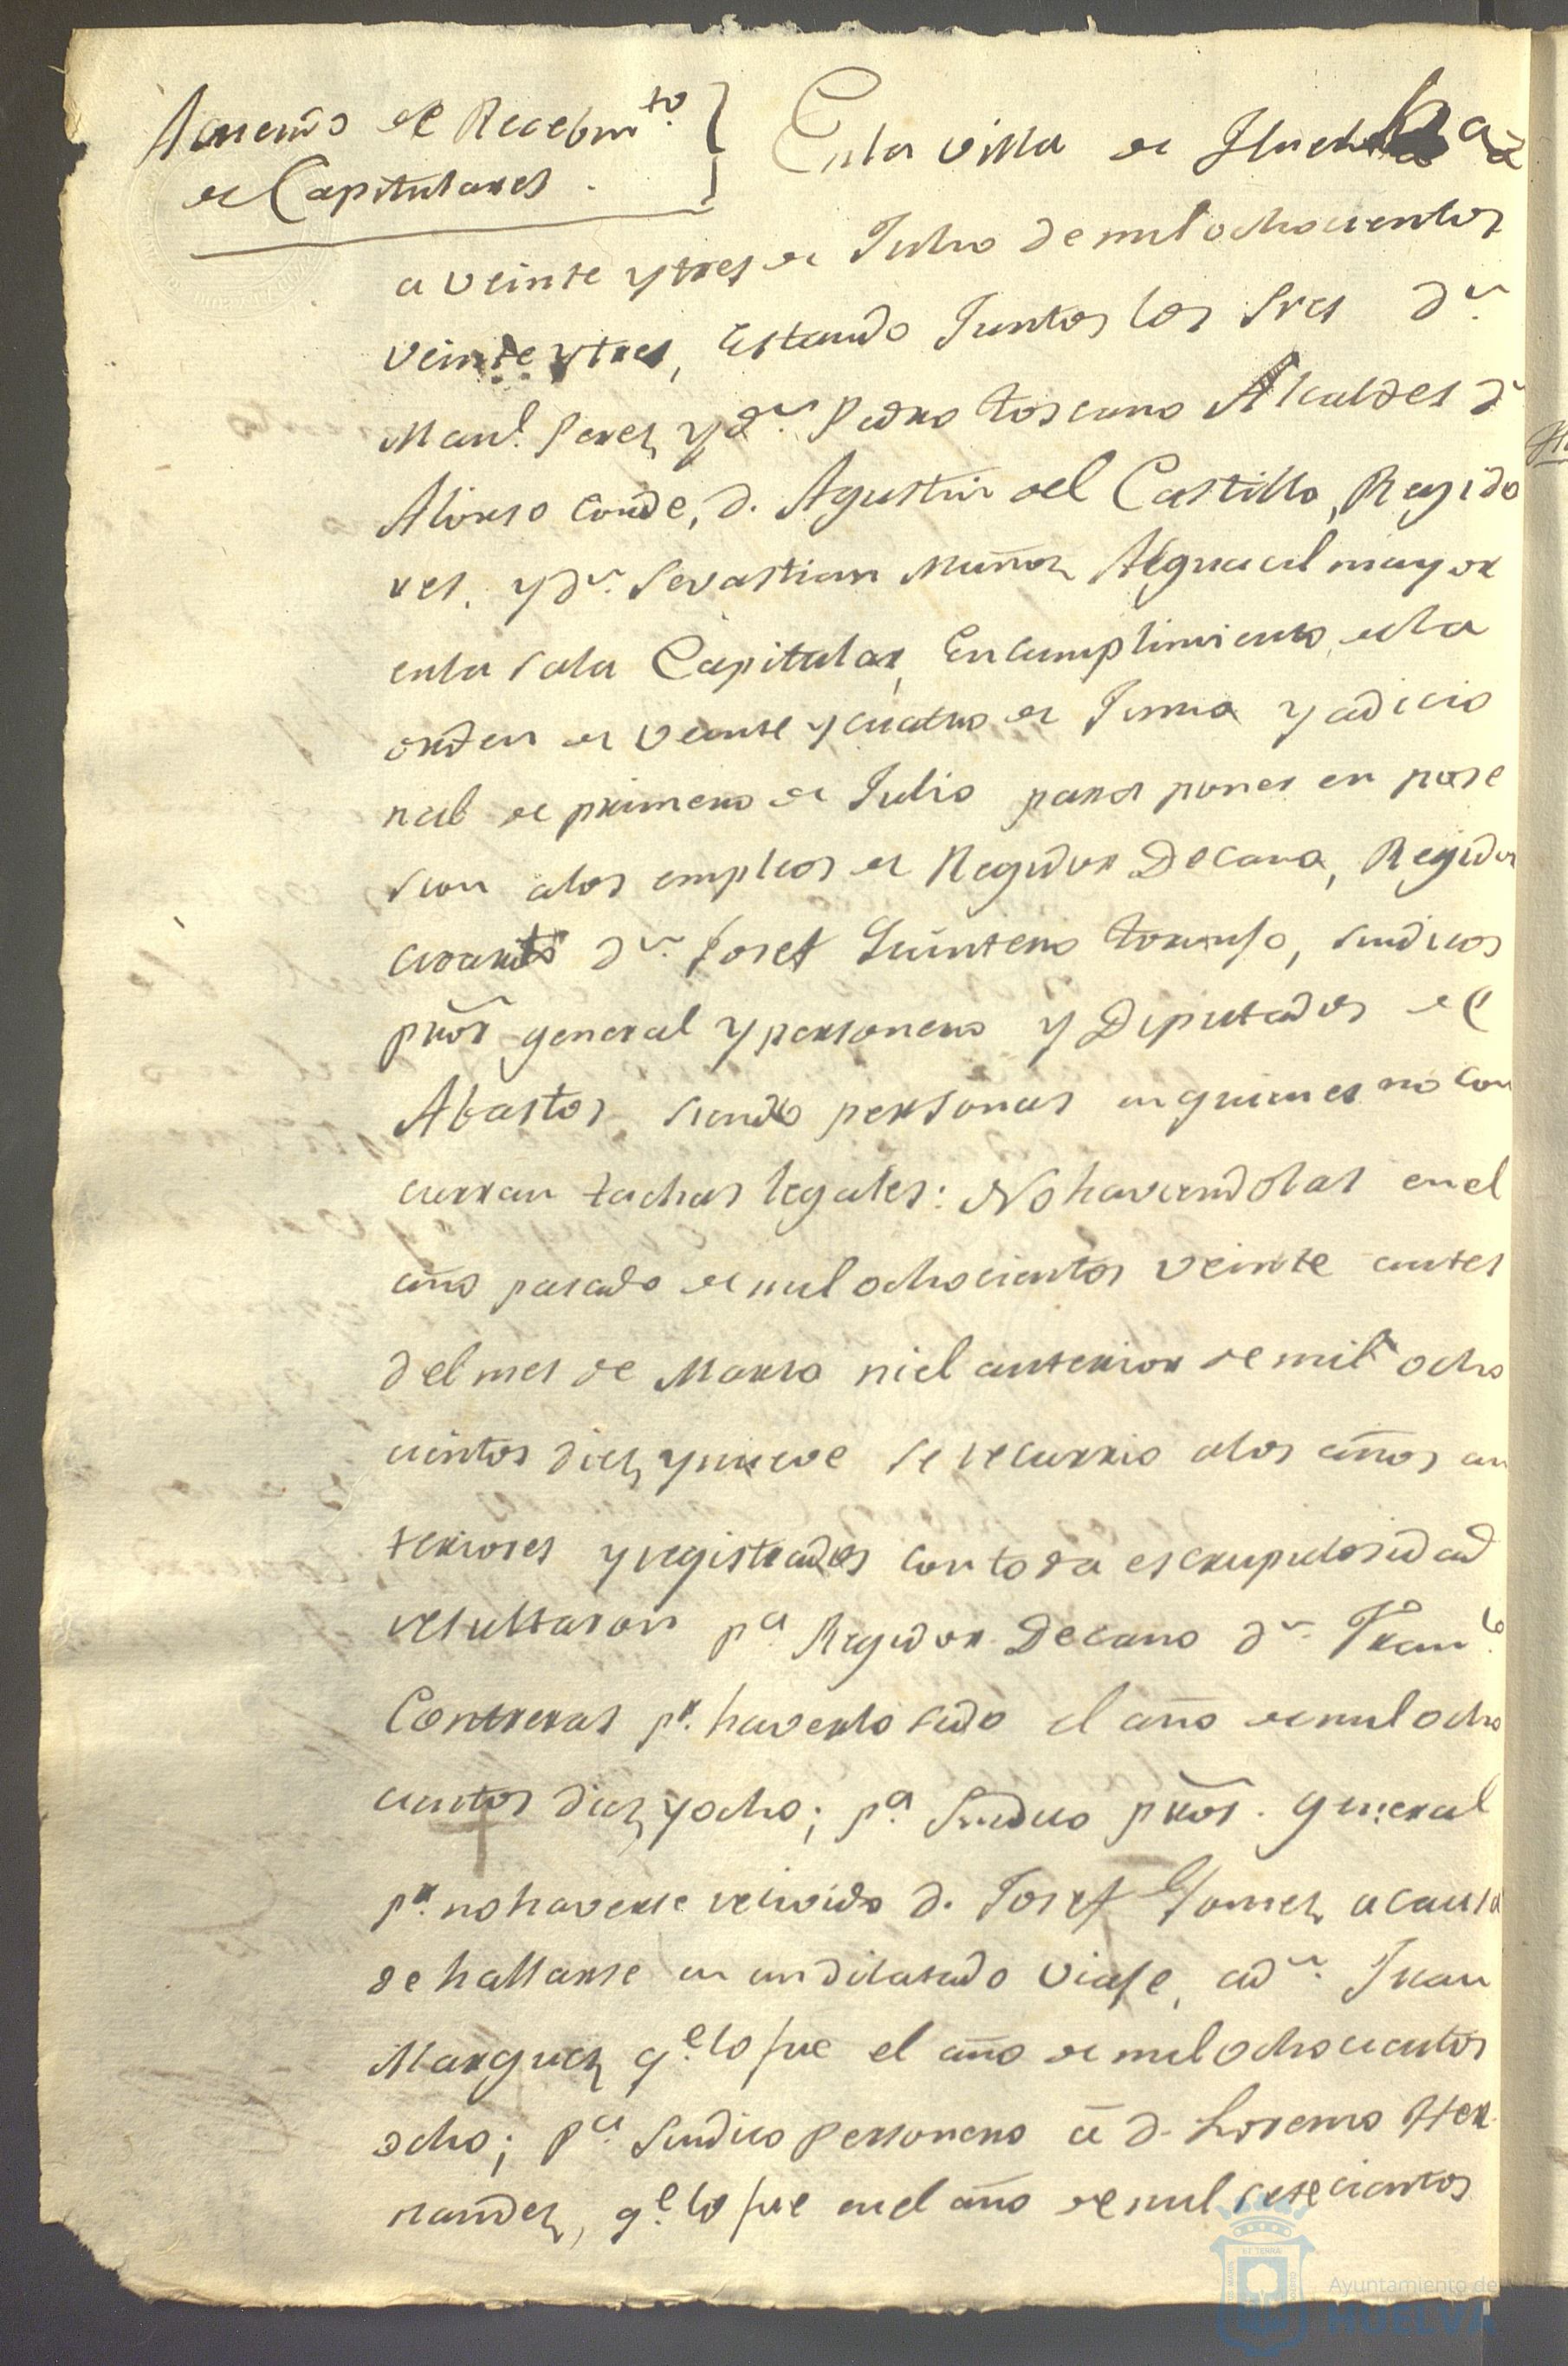 Acuerdo de Recebim.to
de Capitulares.
En la villa de Huelba
a veinte y tres de Julio de mil ochocientos
veinte y tres, Estando Juntos los Sres d.n
Man.l Perez y d.n Pedro Toscano Alcaldes d.n
Alonso Conde, d. Agustin del Castillo, Regido
res. y d.n Sevastian Muñoz Alguacil mayor
en la sala Capitular, En cumplimiento de la
orden de veinte y cuatro de Junio y adicio
nal de primero de Julio para poner en pose
sion a los empleos de Regidor Decano, Regidor
cuarto d.n Josef Quintero, Sindicos
pror general y personero y Diputados de
Abastos siendo personas en quienes no con
curran tachas legales: No haviendolas en el
año pasado de mil ochocientos veinte antes
del mes de Marso ni el anterior de mil ocho
cientos diez y nueve se recurrio a los años an
teriores y registrados con toda escrupulosidad
resultaron p.a Regidor Decano d.n Fran.co
Contreras p.r haverlo sido el año de mil ocho
cientos diez y ocho; p.a Sindico pror. general
p.r no haverse recivido d. Josef Gomez a causa
de hallarse en un dilatado viaje, a d.n Juan
Marquez q.e lo fue el año de mil ochocientos
ocho; p.a Sindico personero a d. Lorenso Her
nandez, q.e lo fue en el año de mil setecientos
Ayuntamiento de
HUELVA